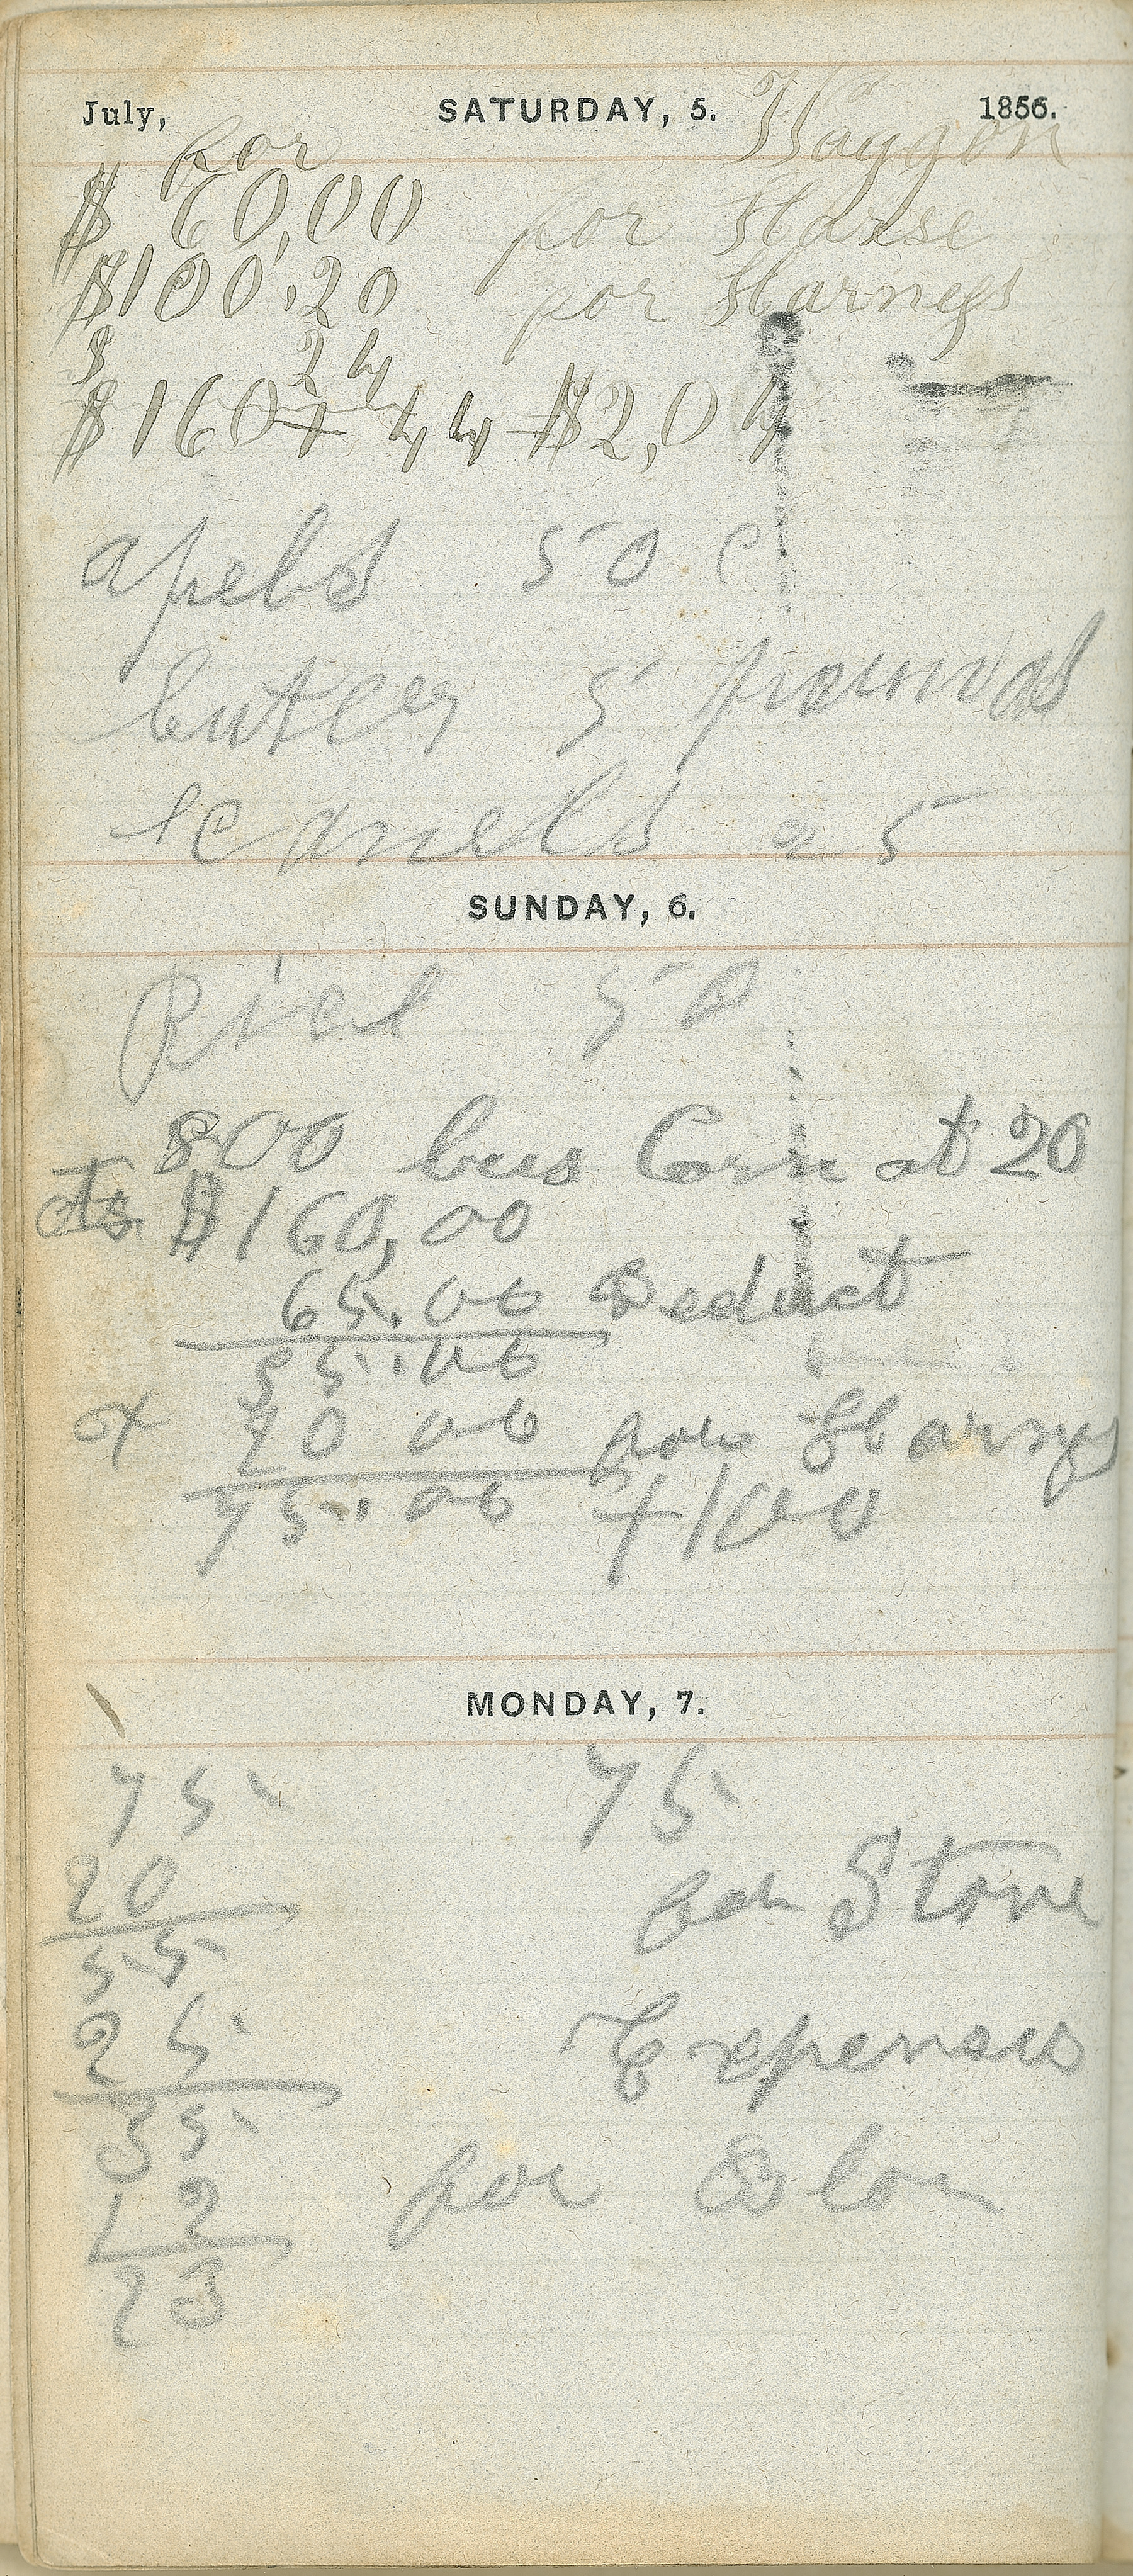 July, SATURDAY, 5. 1856.
for Waggon
$ 60,00 for Harse
$100,20 for Harness
$ 24
$160+ 44 $2,04
apels 50 c
buter 5 pounds
25
SUNDAY, 6.
Rice 50
800 bus Corn at 20
cts $160,00
65.00 Deduct
95.00
of 20 00 for Harness
75.00 +100
MONDAY, 7.
75 75
20 for Stove
55
25 Expenses
35
12 for
23